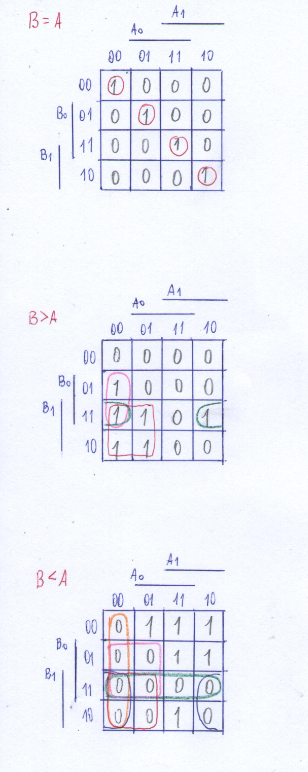 B=A
A₁
A₀
00 01 11 10
00 1 0 0 0
B₀ 01 0 1 0 0
B₁ 11 0 0 1 0
10 0 0 0 1
B>A
A₁
A₀
00 01 11 10
00 0 0 0 0
B₀ 01 1 0 0 0
B₁ 11 1 1 0 1
10 1 1 0 0
B<A
A₁
A₀
00 01 11 10
00 0 1 1 1
B₀ 01 0 0 1 1
B₁ 11 0 0 0 0
10 0 0 1 0